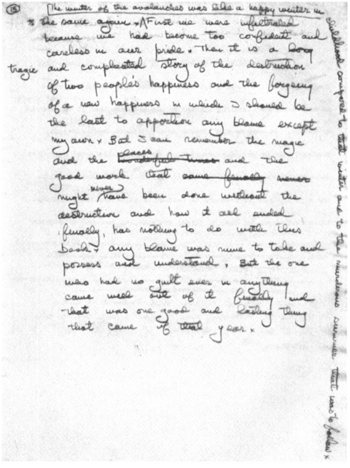 The winter of the avalanches was like a happy winter in
childhood compared to that winter and to the murderous summer that was to follow.
the same again. First we were infiltrated
because we had become too confident and
careless in our pride. Then it is a long
tragic and complicated story of the destruction
of two people's happiness and the forgeing
of a new happiness in which I should be
the last to apportion any blame except
my own. But I can remember the magic
places
and the wonderful times and the
good work that some finally never
never
might have been done without the
destruction and how it all ended
finally, has nothing to do with this
book. any blame was mine to take and
possess and understand. But the one
who had no guilt ever in anything
came well out of it finally and
that was one good and lasting thing
that came of that year.